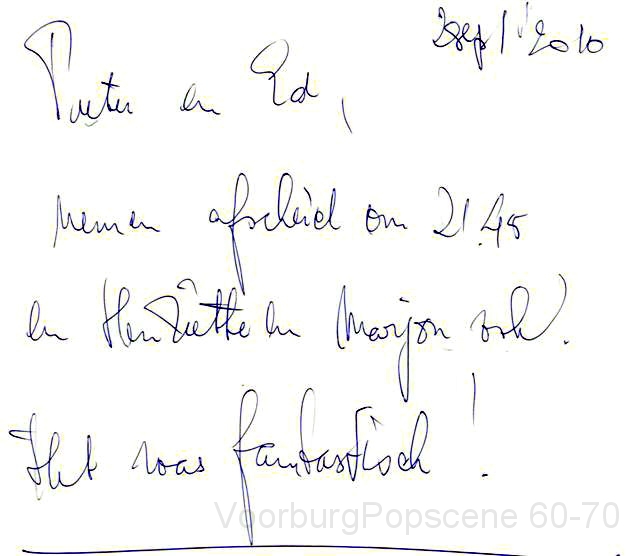 2 sep 2010
Pieter en Ed,
nemen afscheid om 21.45
en Henriëtte en Marjon ook!
Het was fantastisch!
VoorburgPopscene 60-70